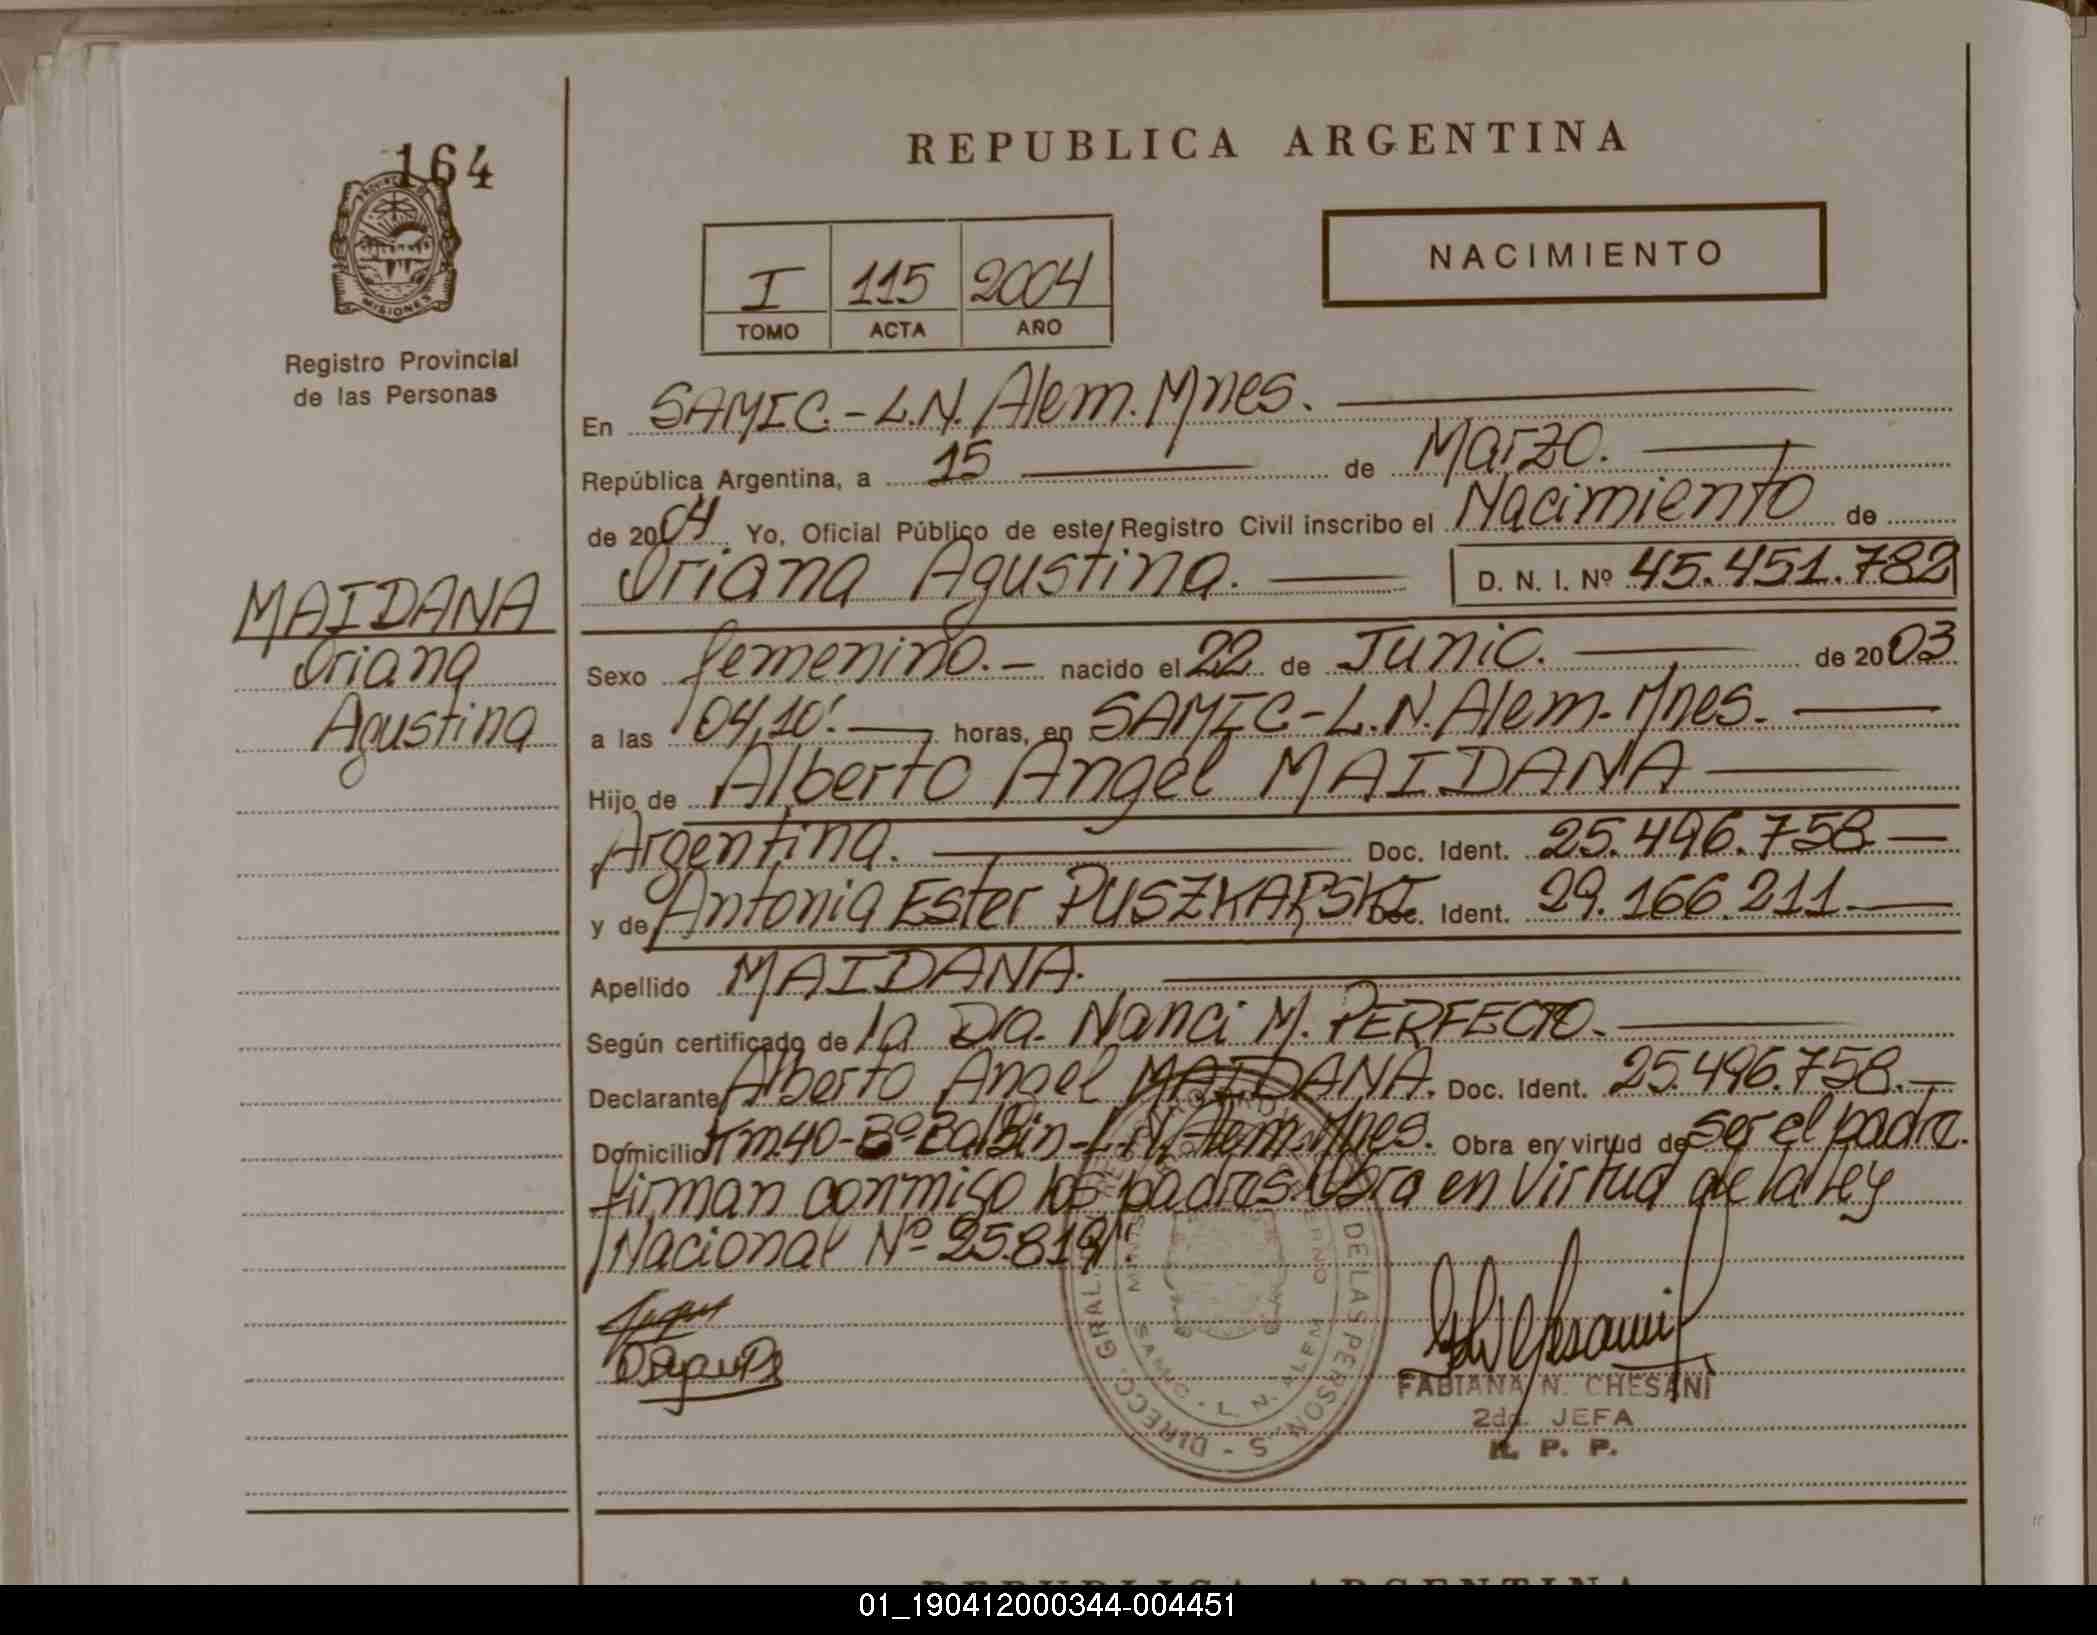 164
PROVINCIA DE
MISIONES
Registro Provincial
de las Personas
MAIDANA
Oriana
Agustina
REPUBLICA ARGENTINA
NACIMIENTO
I 115 2004
TOMO ACTA AÑO
En SAMIC.-L.N.Alem.Mnes.
República Argentina, a 15 de Marzo.
de 2004. Yo, Oficial Público de este Registro Civil inscribo el Nacimiento de
Oriana Agustina. D. N. I. Nº 45.451.782
Sexo femenino.- nacido el 22 de Junio. de 2003
a las 04,10'. horas, en SAMIC-L.N.Alem-Mnes.
Hijo de Alberto Angel MAIDANA
Argentina. Doc. Ident. 25.496.758
y de Antonia Ester PUSZKARSKI Doc. Ident. 29.166.211
Apellido MAIDANA.
Según certificado de la Dra. Nanci M. PERFECTO.
Declarante Alberto Angel MAIDANA. Doc. Ident. 25.496.758.
Domicilio Km40-Bº Balbin-L.N.Alem.Mnes. Obra en virtud de ser el padre.
firman conmigo los padres. Obra en virtud de la ley
Nacional Nº 25.819
DIRECC. GRAL. DE LAS PERSONAS
SAMIC - L. N. ALEM
FABIANA N. CHESANI
2da. JEFA
R. P. P.
REPUBLICA ARGENTINA
01_190412000344-004451